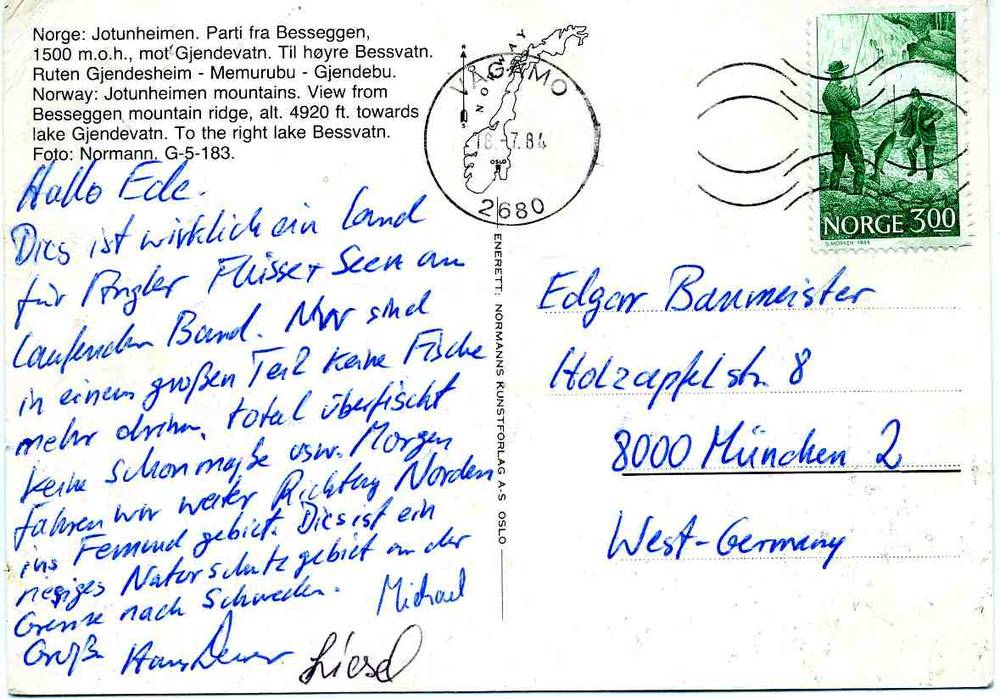 Norge: Jotunheimen. Parti fra Besseggen,
1500 m.o.h., mot Gjendevatn. Til høyre Bessvatn.
Ruten Gjendesheim - Memurubu - Gjendebu.
Norway: Jotunheimen mountains. View from
Besseggen mountain ridge, alt. 4920 ft. towards
lake Gjendevatn. To the right lake Bessvatn.
Foto: Normann. G-5-183.
Hallo Ede.
Dies ist wirklich ein Land
für Angler Flüsse + Seen am
laufenden Band. Nur sind
in einem großen Teil keine Fische
mehr drinn, total überfischt
keine Schonmaße usw. Morgen
fahren wir weiter Richtung Norden
ins Femund gebiet. Dies ist ein
riesiges Naturschutzgebiet an der
Grenze nach Schweden.
Michael
Grüße
Liesel
NORWAY
VÅGÅMO
OSLO
-7.84
2680
NORGE 3.00
S MORKEN 1984
ENERETT: NORMANNS KUNSTFORLAG A-S OSLO
Edgar Baumeister
Holzapfelstr. 8
8000 München 2
West-Germany